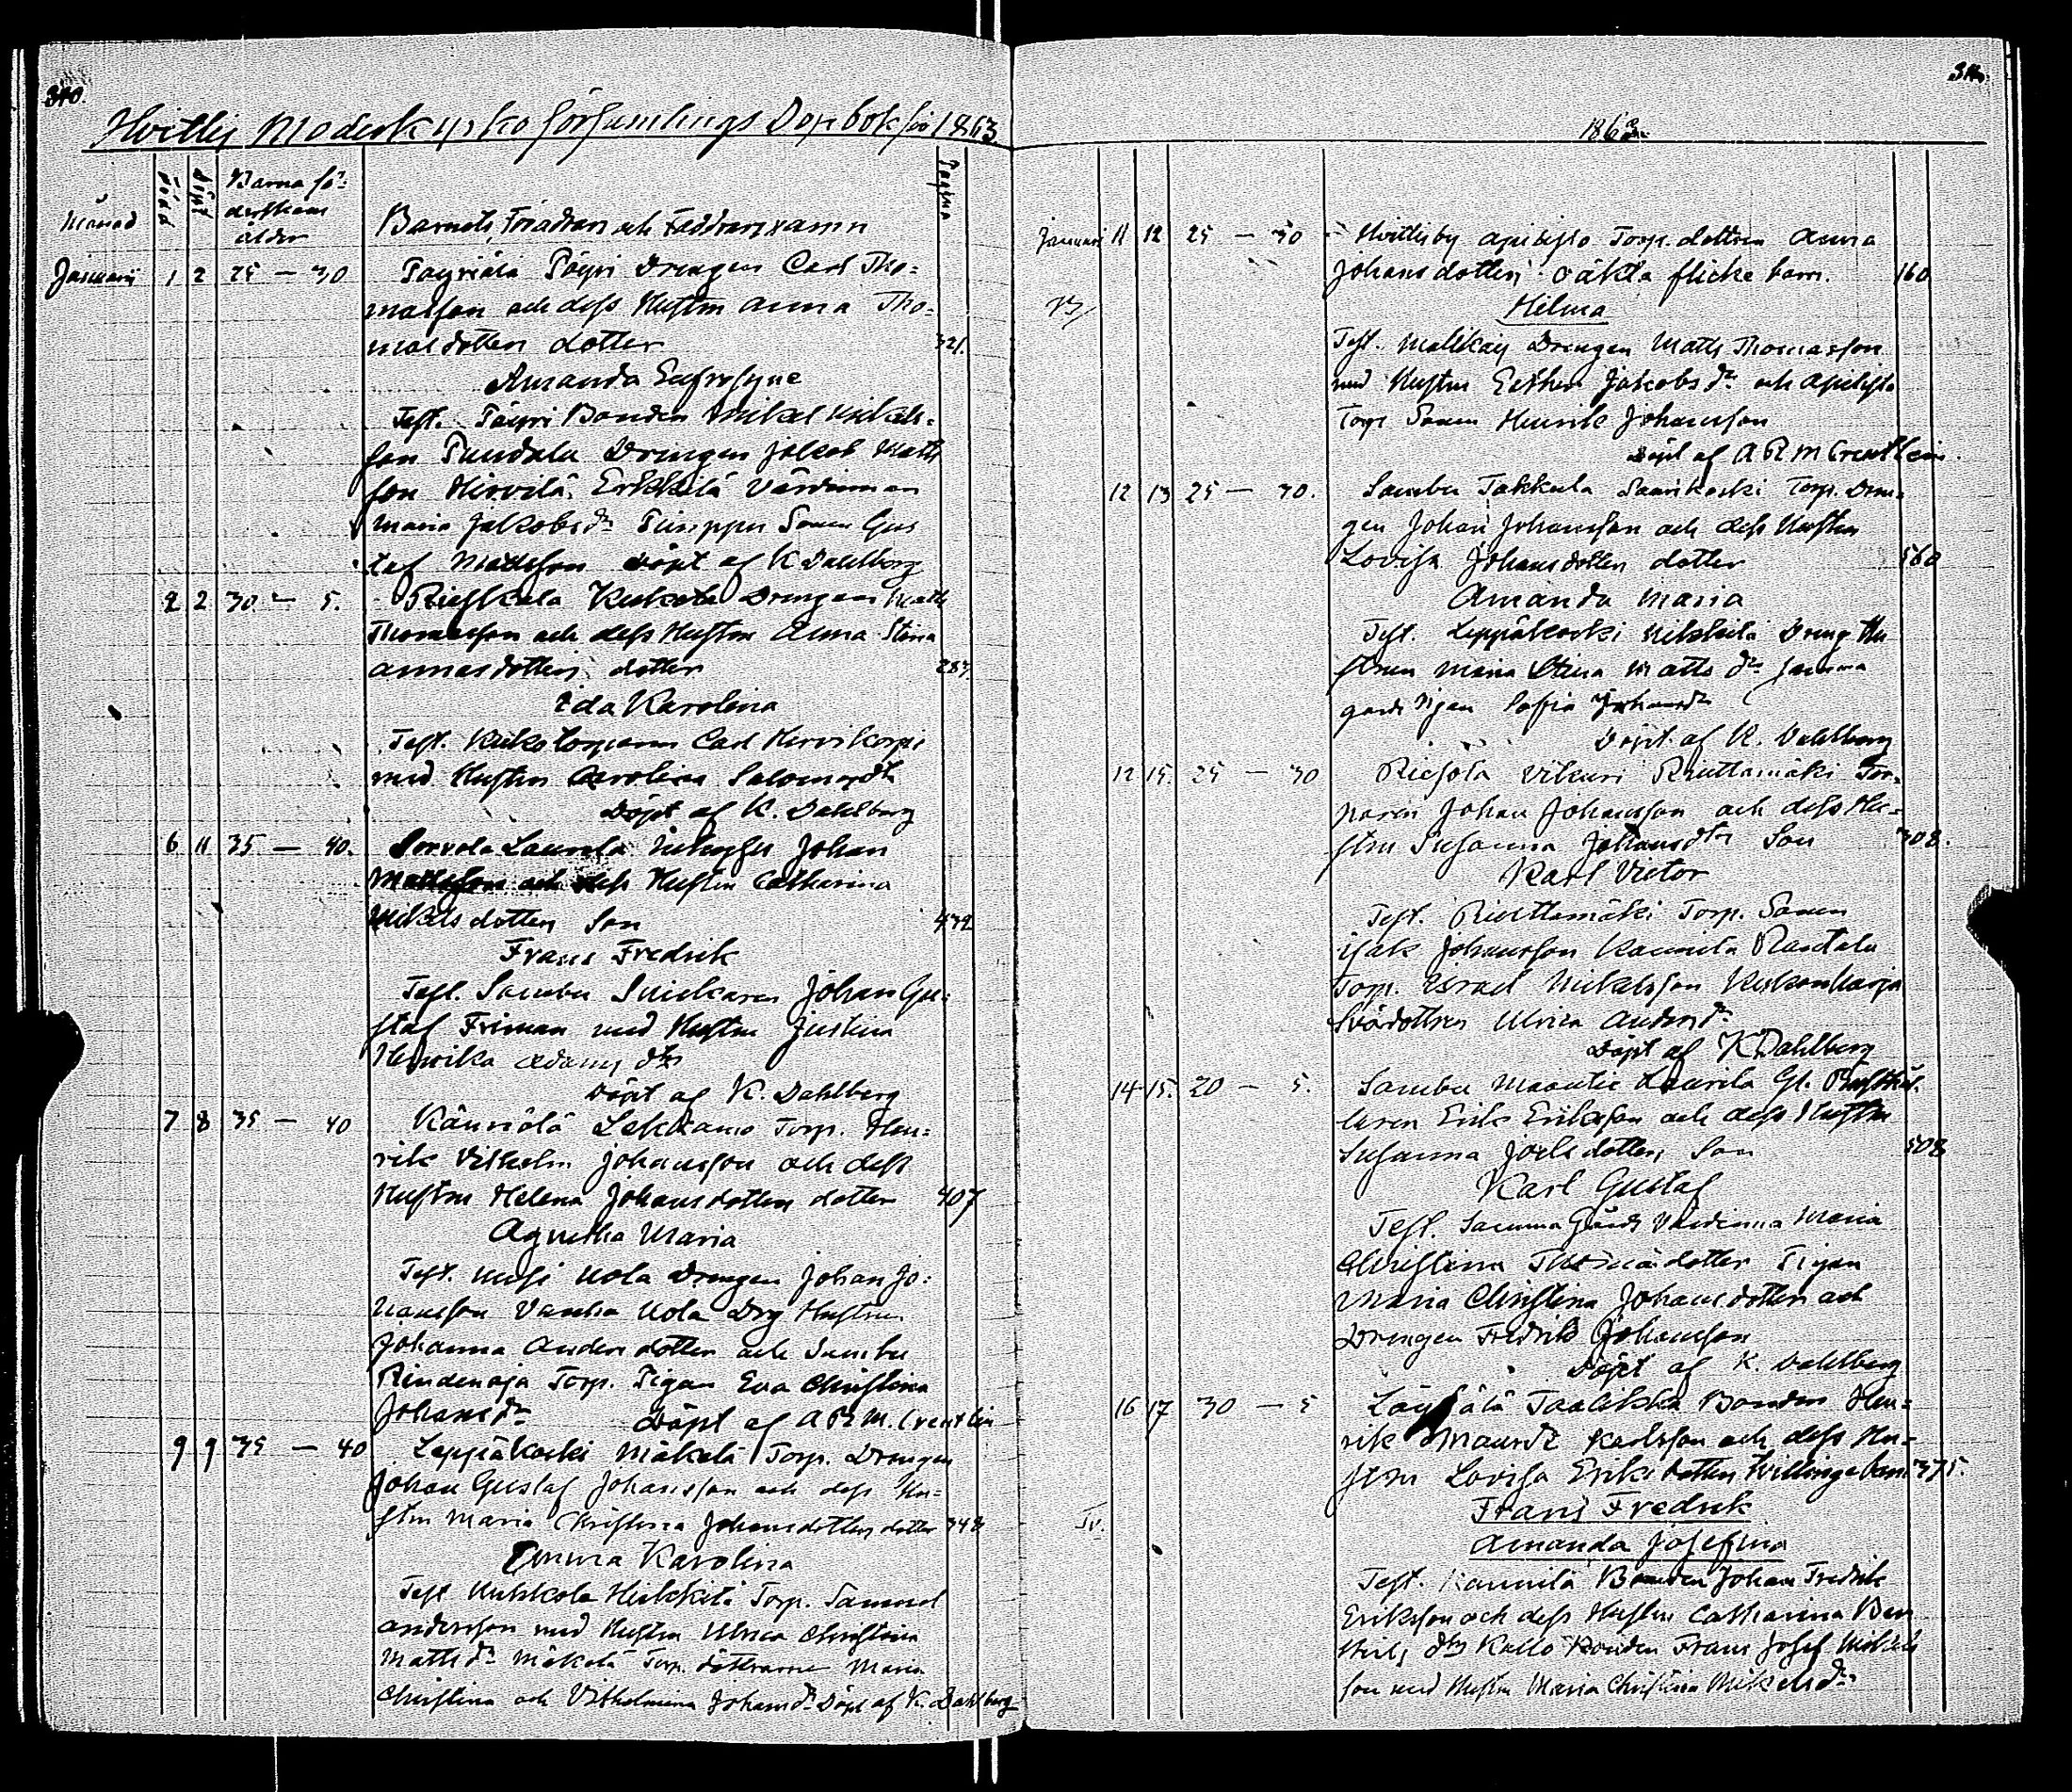 340.
Hvittis Moderkyrko församlings Dopbok för 1863
Månad
född
döpt
Barna föderskans ålder
Barnets, Föräldrars och Faddrars namn
Pagina
Januari 1 2 25 — 30 Päyriälä Päyri Drengen Carl Tho=
masson och dess Hustru Anna Tho=
masdotters dotter 321.
Amanda Eufrosyne
Test. Päyri Bonden Mikael Mikaels=
son Drengen Jakob Matts
son Hirvilä, Erkkilä Värdinnan
Maria Jakobsdr Sonen Gus
taf Mattsson döpt af K Dahlberg
2 2 30 — 5. Rieskala Keskola Drengens Matts
Thomasson och dess Hustru Anna Stina
Annasdotters dotter 287.
Ida Karolina
Test. Torparen Carl Hirvikorpi
med Hustru Carolina Salomonsdtr
Döpt af K. Dahlberg
6 11 35 — 40. Sorvola Laurila Inhyses Johan
Mattsson och dess Hustru Catharina
Mikelsdotters Son 472
Frans Fredrik
Test. Sambu Snickaren Johan Gu=
staf Friman med Hustru Justina
Henrika Adamsdtr
Döpt af K. Dahlberg
7 8 35 — 40 Känriölä Lekkamo Torp. Hen=
rik Vilhelm Johansson och dess
Hustru Helena Johansdotters dotter 407
Agnetha Maria
Test. Uusi Uola Drengen Johan Jo=
hansson Vanha Uola Drg Hustrun
Johanna Andersdotter och Sambu
Rindenoja Torp. Pigan Eva Christina
Johansdr Döpt af A R M. Creutlein
9 9 35 — 40 Leppäkoski Mäkelä Torp. Drengen
Johan Gustaf Johansson och dess Hu=
stru Maria Christina Johansdotters dotter 348
Emma Karolina
Test Huhkola Heikkilä Torp. Samuel
Andersson med Hustru Ulrica Christina
Mattsdr Mäkelä Torp. döttrarne Maria
Christina och Vilhelmina Johansdr Döpt af K. Dahlberg
341.
1863
Januari 11 12 25 — 30 Hvittisby Torp. dottren Anna
Johansdotters oäkta flicke barn. 160
Hilma
Test. Drengen Matts Thomasson
med Hustru Esther Jakobsdr och
Torp Sonen Henrik Johansson
Döpt af A R M Creutlein.
12 13 25 — 30. Sambu Takkula Saarikoski Torp. Dren=
gen Johan Johansson och dess Hustru
Lovisa Johansdotters dotter 560
Amanda Maria
Test. Leppäkoski Mikkilä Dreng Hu
strun Maria Stina Mattsdr Samma
gårds Pigan Sofia Johansdr
Döpt af K. Dahlberg
12 15. 25 — 30 Riesola Vikuri Riuttamäki Tor=
paren Johan Johansson och dess Hu=
stru Susanna Johansdtrs Son 308.
Karl Victor
Test. Riuttamäki Torp. Sonen
Isak Johansson Kaurila Rantala
Torp. Israel Mikelsson Keskonharja
Svärdottren Ulrica Andersdr
Döpt af K Dahlberg
14 15. 20 — 5. Sambu Maantie Laurila Gl. Rusthål=
laren Erik Eriksson och dess Hustru
Susanna Joelsdotters Son 508
Karl Gustaf
Test. Samma Gårds Värdinna Maria
Christina Thomasdotter Pigan
Maria Christina Johansdotter och
Drengen Fredrik Johansson
Döpt af K. Dahlberg
16 17 30 — 5 Taalikka Bonden Hen=
rik Maurits Karlsson och dess Hu=
stru Lovisa Eriksdotters tvillingebarn 375.
Tv.
Frans Fredrik
Amanda Josefina
Test. Kaurila Bonden Johan Fredrik
Eriksson och dess Hustru Catharina
dtr Kallo Bonden Frans Josef Mickels
son med Hustru Maria Christina Mikelsdr